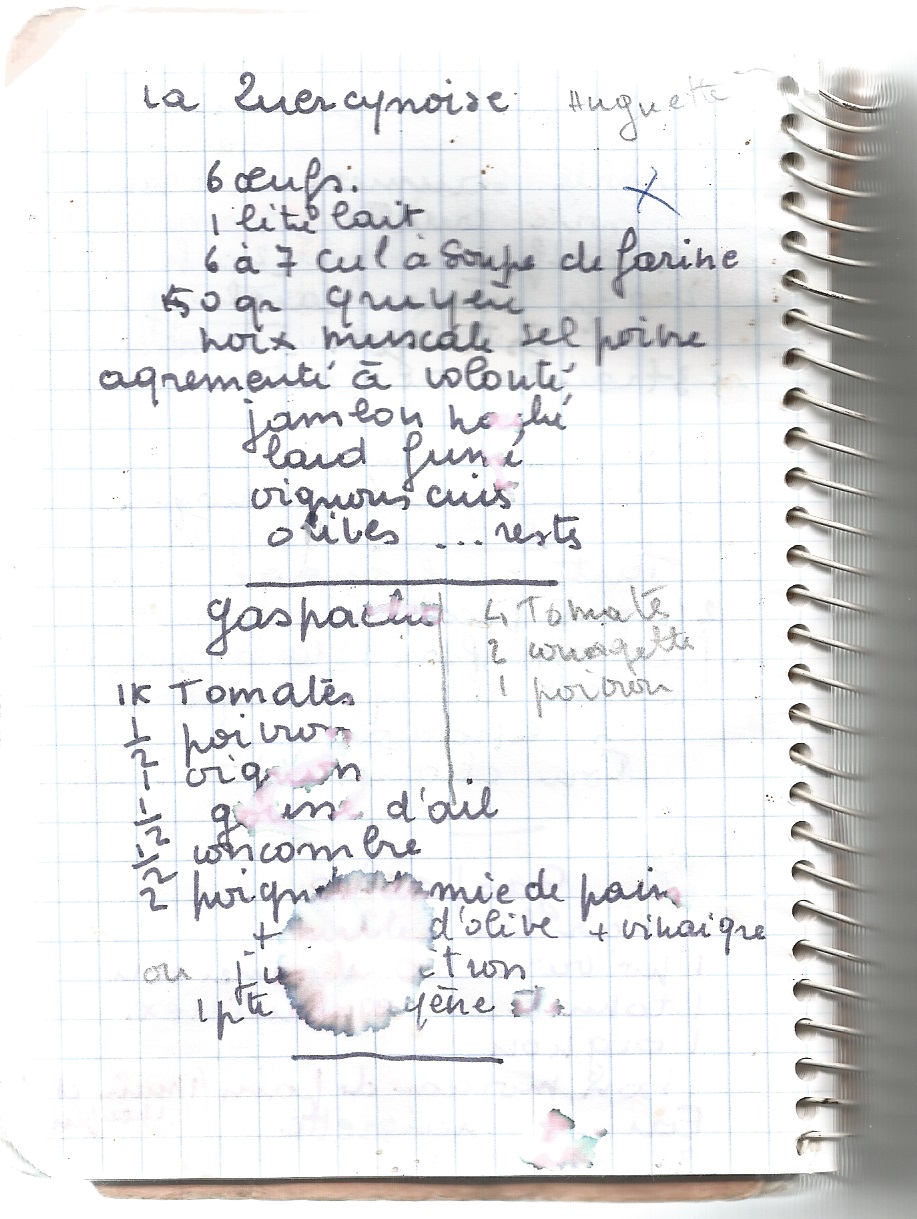 La Quercynoise Huguette
6 œufs.
1 litre lait
6 à 7 cul à soupe de farine
50 gr gruyère
noix muscade sel poivre
agrementé à volonté
jambon haché
lard fumé
oignons cuits
olives ... rests
gaspacho
4 Tomate
2 courgette
1 poivron
1K Tomates
1/2 poivron
1 oignon
1/2 d'ail
1/2 concombre
2 mie de pain
+ d'olive + vinaigre
ou
1 pte